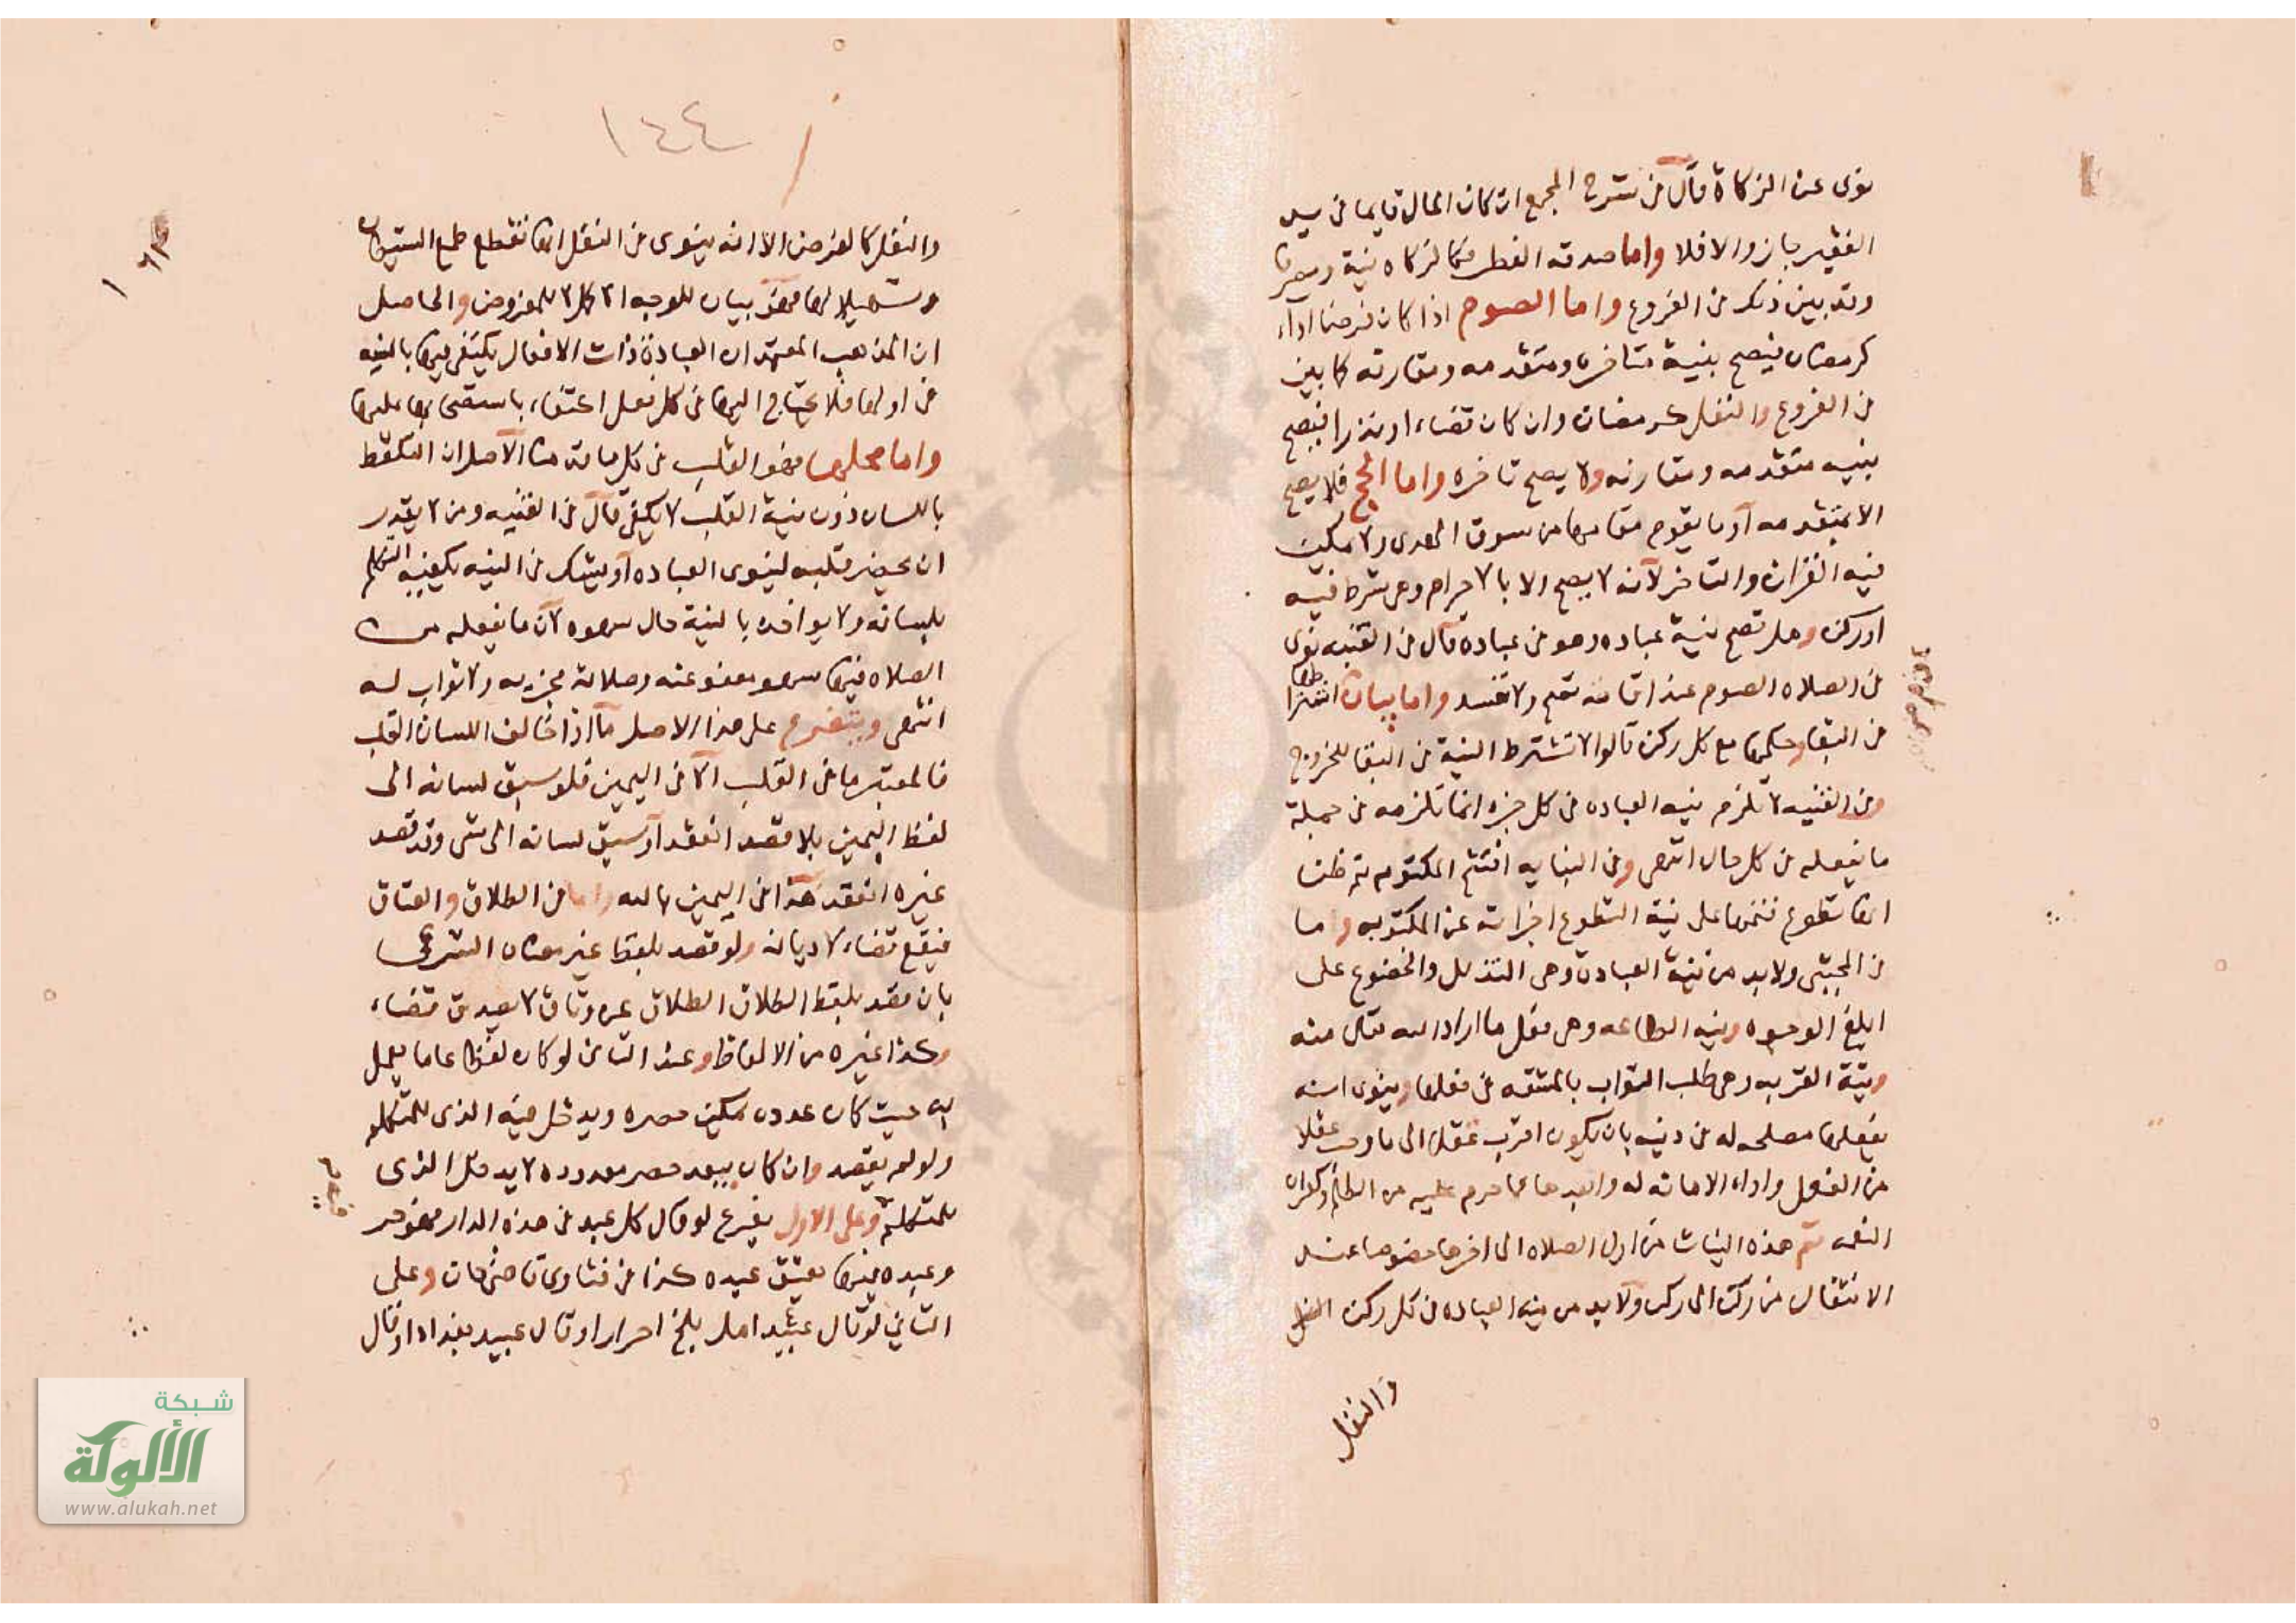 نوى عن الزكاة قال في شرح المجمع ان كان المال قايما في يد
الفقير جاز والا فلا واما صدقة الفطر فكالزكاه نية ومصرفا
وقد بين ذلك في الفروع واما الصوم اذا كان فرضا اداء
كرمضان فيصح بنية متاخره ومتقدمه ومقارنه كما بين
في الفروع والنفل كرمضان وان كان قضاء او نذرا فيصح
بنيه متقدمه ومقارنه ولا يصح تاخره واما الحج فلا يصح
الا بمتقدمه او ما يقوم مقامها من سوق الهدى ولا يمكن
فيه القران والتاخر لانه لا يصح الا بالاحرام وهى شرط فيه
او ركن وهل تصح نية عباده وهو في عباده قال في القنيه نوى
في الصلاه الصوم عند اقامته تصح ولا تفسد واما بيان اشتراطها
في البقا وحكمها مع كل ركن قالوا لا تشترط النية في البقا للحرج
وفى القنيه لا تلزم نيه العباده في كل جزء انما تلزمه في جملة
ما يفعله في كل حال انتهى وفى البنايه افتتح المكتوبه ثم ظن
انها تطوع فتمها على نية التطوع اجزاته عن المكتوبه واما
في المجتبى ولا بد من نية العبادة وهى التذلل والخضوع على
ابلغ الوجوه ونيه الطاعه وهى فعل ما اراد الله تعالى منه
ونية القربه وهى طلب الثواب بالمشقه في فعلها وينوى انه
يفعلها مصلحه له في دينه بان يكون اقرب الى ما وجب عقلا
من الفعل واداء الامانه له وابعد عما حرم عليه من الظلم وكفران
النعمه ثم هذه النيات من اول الصلاه الى اخرها خصوصا عند
الانتقال من ركن الى ركن ولا بد من نيه العباده في كل ركن
والنفل
١٤٤
والنفل كالفرض الا انه ينوى في النفل انها تقطع طمع الشيطان
وتسهيلا لها فهو بيان للوجه الاكمل لا للمفروض والحاصل
ان المذهب المعتمد ان العبادة ذات الافعال يكتفى فيها بالنيه
في اولها فلا يحتاج اليها في كل فعل اكتفاء بانسحابها عليها
واما محلها فهو القلب في كل ما مر الاصل ان التلفظ
باللسان دون نية القلب لا يكفى قال في القنيه ومن لا يقدر
ان يحضر قلبه لينوى العباده او يشك في النيه يكفيه التكلم
بلسانه ولا يواخذه بالنية حال سهوه لان ما يفعله من
الصلاه فيها سهو معفو عنه وصلاته مجزيه ولا ثواب له
انتهى ويتفرع على هذا الاصل ما اذا خالف اللسان القلب
فالمعتبر ما في القلب الا في اليمين فلو سبق لسانه الى
لفظ اليمين بلا قصد انعقد او سبق لسانه الى شى وقد قصد
غيره انعقد هذا في اليمين بالله واما في الطلاق والعتاق
فيقع قضاء لا ديانه ولو قصد بلفظ غير معناه الشرعى
بان قصد بلفظ الطلاق الطلاق عن وثاق لا يصدق قضاء
وكذا غيره من الالفاظ وعند الثانى لو كان لفظا عاما يعمل
به حيث كان عدده يمكن حصره ويدخل فيه الذى للمتكلم
ولو لم يقصد وان كان يبعد حصر معدوده لا يدخل الذى
للمتكلم وعلى الاول يفرع لو قال كل عبد في هذه الدار فهو حر
وعبده فيها يعتق عبده كذا في فتاوى قاضى خان وعلى
الثاني لو قال عبيد اهل بلخ احرار او قال عبيد بغداد او قال
شبكة
الألوكة
www.alukah.net